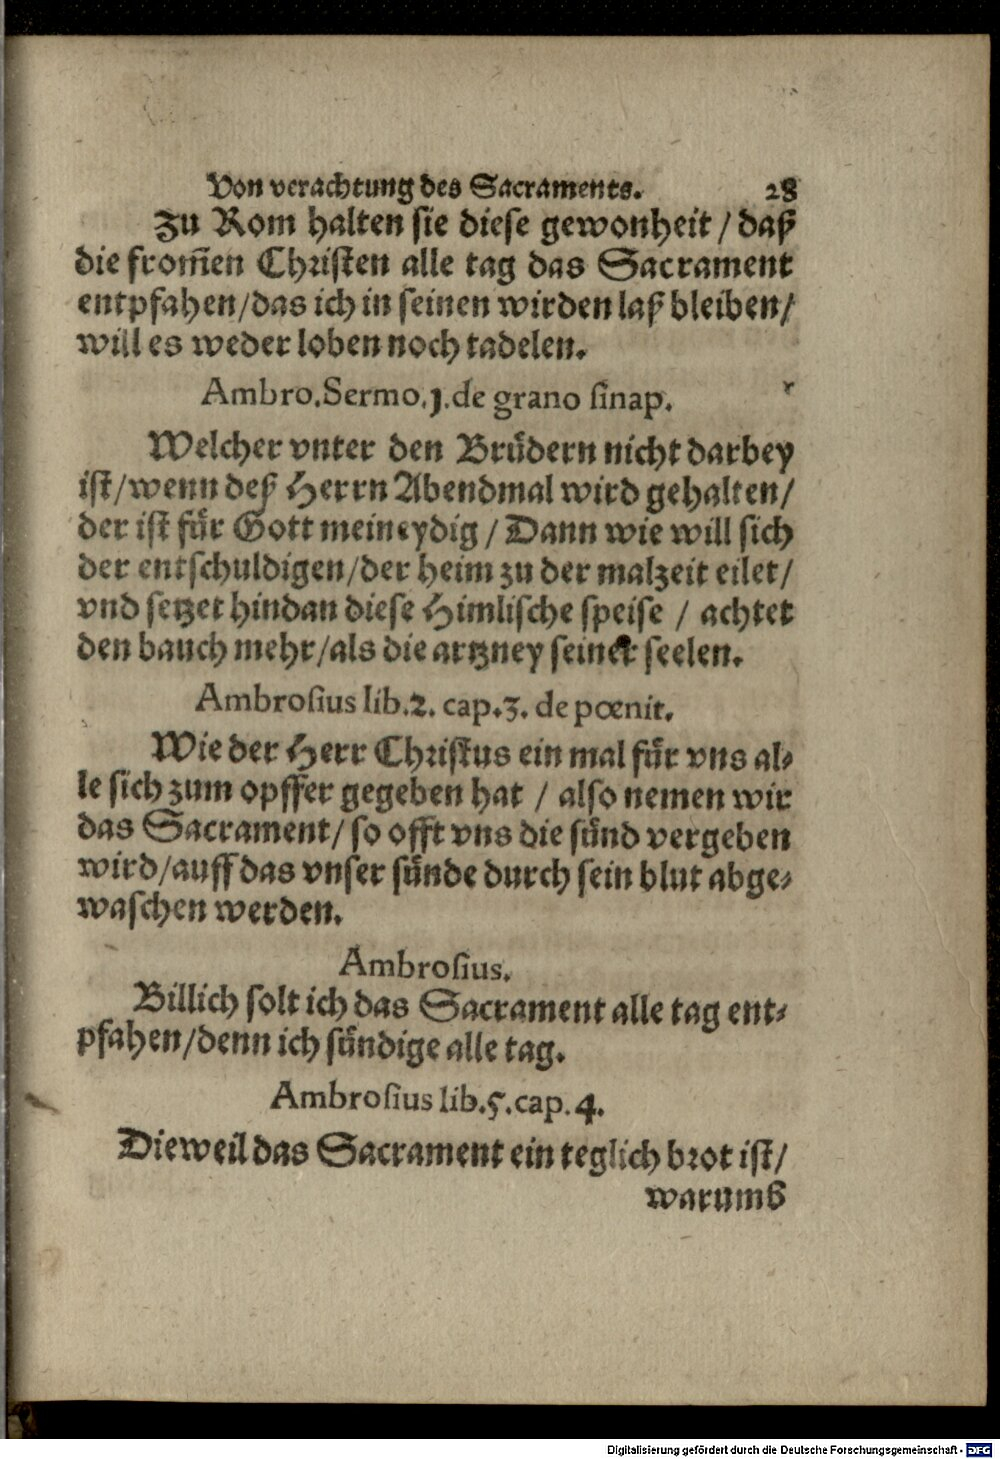 Von verachtung des Sacraments. 28
Zu Rom halten sie diese gewonheit / daß
die from̃en Christen alle tag das Sacrament
entpfahen/das ich in seinen wirden laß bleiben/
will es weder loben noch tadelen.
Ambro.Sermo.1.de grano sinap.
Welcher vnter den Bruͤdern nicht darbey
ist/wenn deß Herrn Abendmal wird gehalten/
der ist fuͤr Gott meineydig / Dann wie will sich
der entschuldigen/der heim zu der malzeit eilet/
vnd setzet hindan diese Himlische speise / achtet
den bauch mehr/als die artzney seiner seelen.
Ambrosius lib.2. cap.3. de pœnit.
Wie der Herr Christus ein mal fuͤr vns al⸗
le sich zum opffer gegeben hat / also nemen wir
das Sacrament/so offt vns die suͤnd vergeben
wird/auff das vnser suͤnde durch sein blut abge⸗
waschen werden.
Ambrosius.
Billich solt ich das Sacrament alle tag ent⸗
pfahen/denn ich suͤndige alle tag.
Ambrosius lib.5.cap.4.
Dieweil das Sacrament ein teglich brot ist/
warumb
Digitalisierung gefördert durch die Deutsche Forschungsgemeinschaft - DFG